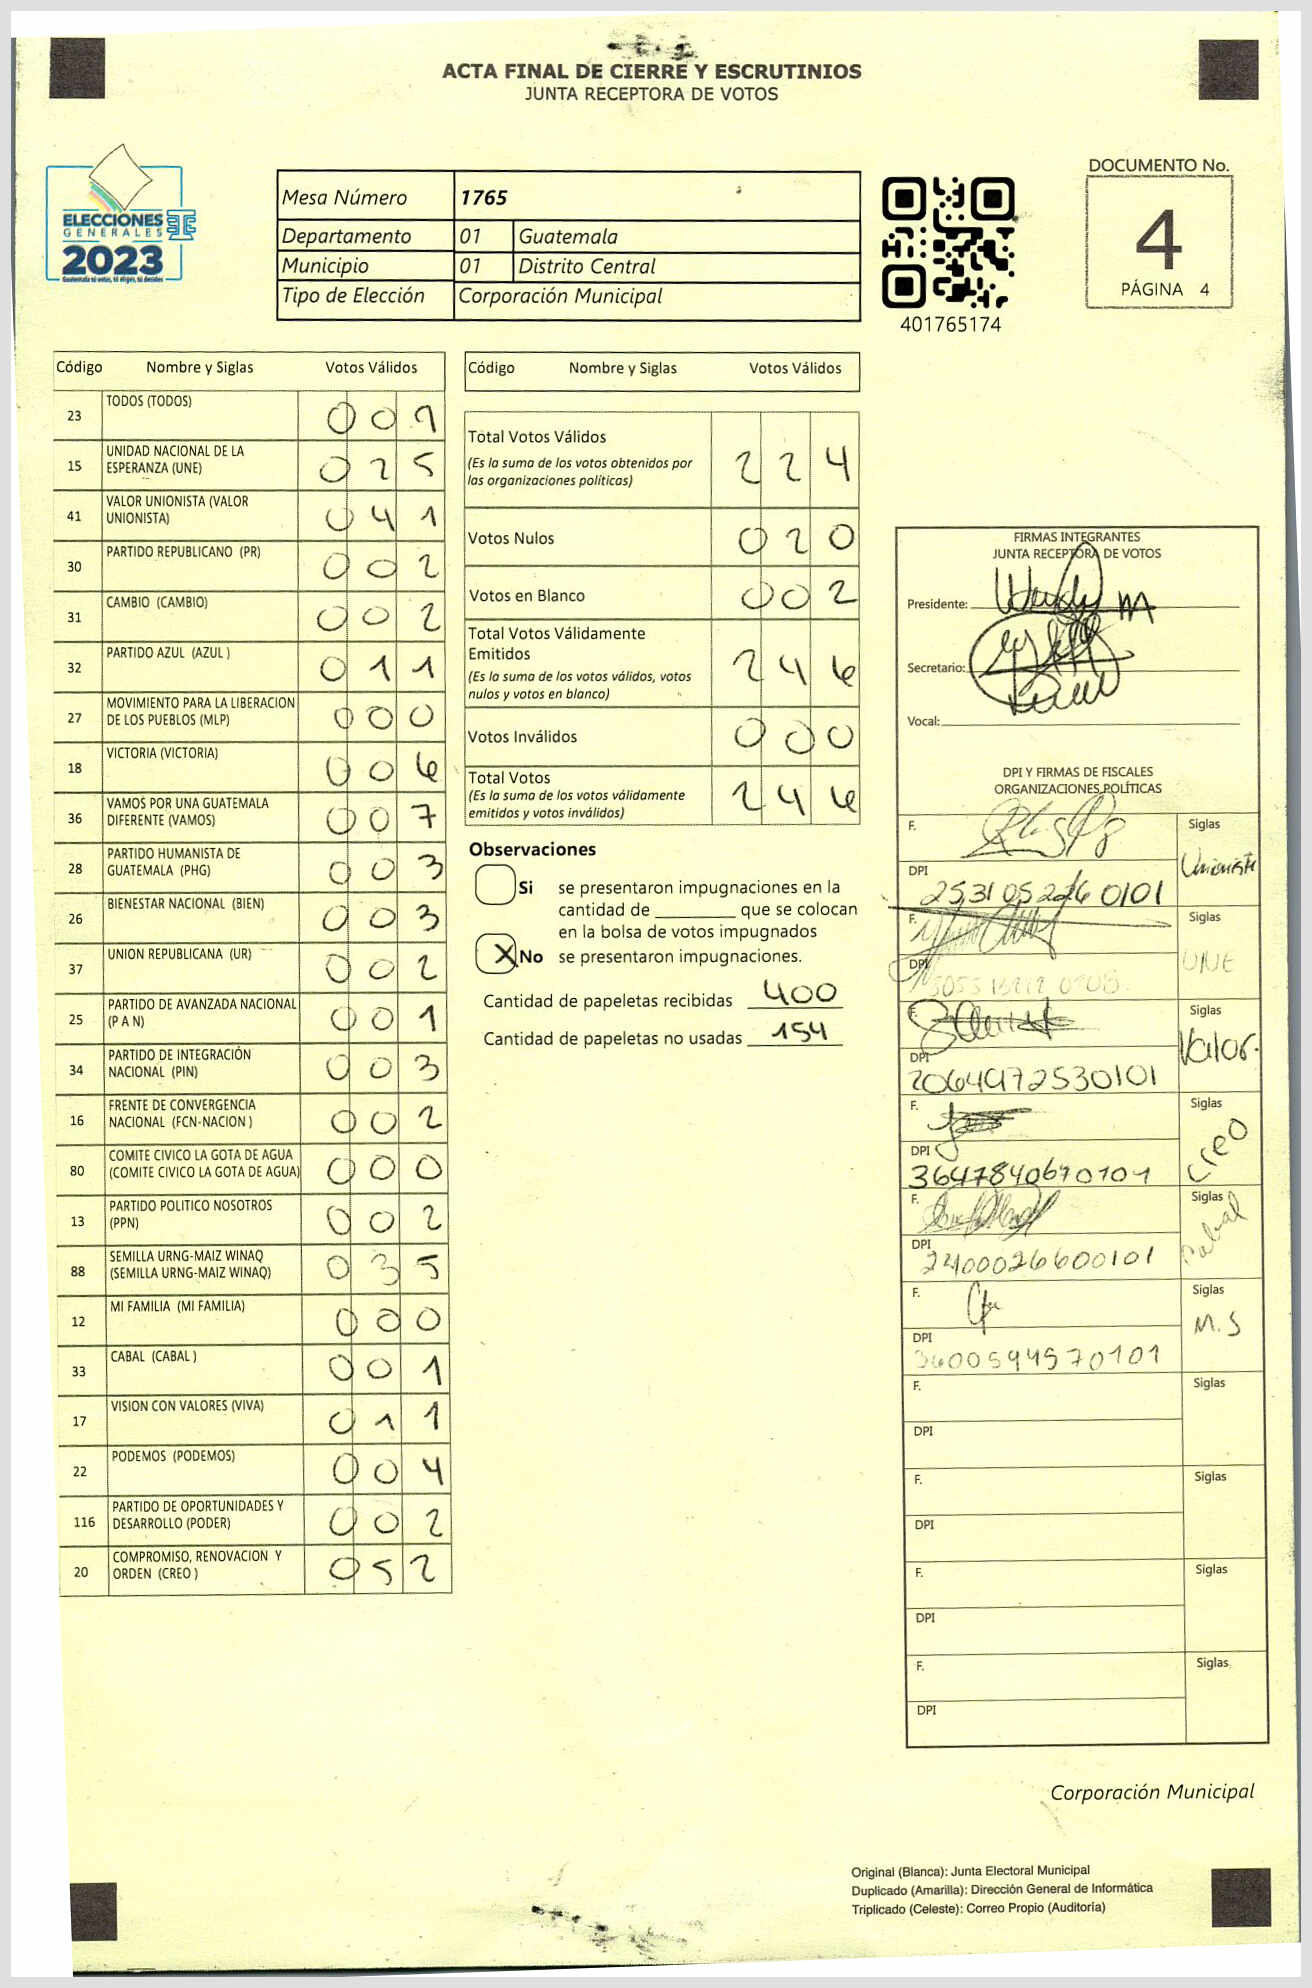 ACTA FINAL DE CIERRE Y ESCRUTINIOS
JUNTA RECEPTORA DE VOTOS
ELECCIONES
GENERALES
2023
Guatemala tú votas, tú eliges, tú decides
Mesa Número 1765
Departamento 01 Guatemala
Municipio 01 Distrito Central
Tipo de Elección Corporación Municipal
401765174
DOCUMENTO No.
4
PÁGINA 4
Código Nombre y Siglas Votos Válidos
23 TODOS (TODOS) 009
15 UNIDAD NACIONAL DE LA
ESPERANZA (UNE) 025
41 VALOR UNIONISTA (VALOR
UNIONISTA) 041
30 PARTIDO REPUBLICANO (PR) 002
31 CAMBIO (CAMBIO) 002
32 PARTIDO AZUL (AZUL ) 011
27 MOVIMIENTO PARA LA LIBERACION
DE LOS PUEBLOS (MLP) 000
18 VICTORIA (VICTORIA) 006
36 VAMOS POR UNA GUATEMALA
DIFERENTE (VAMOS) 007
28 PARTIDO HUMANISTA DE
GUATEMALA (PHG) 003
26 BIENESTAR NACIONAL (BIEN) 003
37 UNION REPUBLICANA (UR) 002
25 PARTIDO DE AVANZADA NACIONAL
(P A N) 001
34 PARTIDO DE INTEGRACIÓN
NACIONAL (PIN) 003
16 FRENTE DE CONVERGENCIA
NACIONAL (FCN-NACION ) 002
80 COMITE CIVICO LA GOTA DE AGUA
(COMITE CIVICO LA GOTA DE AGUA) 000
13 PARTIDO POLITICO NOSOTROS
(PPN) 002
88 SEMILLA URNG-MAIZ WINAQ
(SEMILLA URNG-MAIZ WINAQ) 035
12 MI FAMILIA (MI FAMILIA) 000
33 CABAL (CABAL ) 001
17 VISION CON VALORES (VIVA) 011
22 PODEMOS (PODEMOS) 004
116 PARTIDO DE OPORTUNIDADES Y
DESARROLLO (PODER) 002
20 COMPROMISO, RENOVACION Y
ORDEN (CREO ) 052
Código Nombre y Siglas Votos Válidos
Total Votos Válidos 224
(Es la suma de los votos obtenidos por
las organizaciones políticas)
Votos Nulos 020
Votos en Blanco 002
Total Votos Válidamente
Emitidos 246
(Es la suma de los votos válidos, votos
nulos y votos en blanco)
Votos Inválidos 000
Total Votos 246
(Es la suma de los votos válidamente
emitidos y votos inválidos)
Observaciones
Si se presentaron impugnaciones en la
cantidad de ________ que se colocan
en la bolsa de votos impugnados
X No se presentaron impugnaciones.
Cantidad de papeletas recibidas 400
Cantidad de papeletas no usadas 154
FIRMAS INTEGRANTES
JUNTA RECEPTORA DE VOTOS
Presidente:
Secretario:
Vocal:
DPI Y FIRMAS DE FISCALES
ORGANIZACIONES POLÍTICAS
F. Siglas Unionista
DPI
F. Siglas UNE
DPI
F. Siglas Valor.
DPI 2064972530101
F. Siglas Creo
DPI 3647840670101
F. Siglas
DPI 2400026600101
F. Siglas M.S
DPI 3600594570101
F. Siglas
DPI
F. Siglas
DPI
F. Siglas
DPI
F. Siglas
DPI
Corporación Municipal
Original (Blanca): Junta Electoral Municipal
Duplicado (Amarilla): Dirección General de Informática
Triplicado (Celeste): Correo Propio (Auditoría)